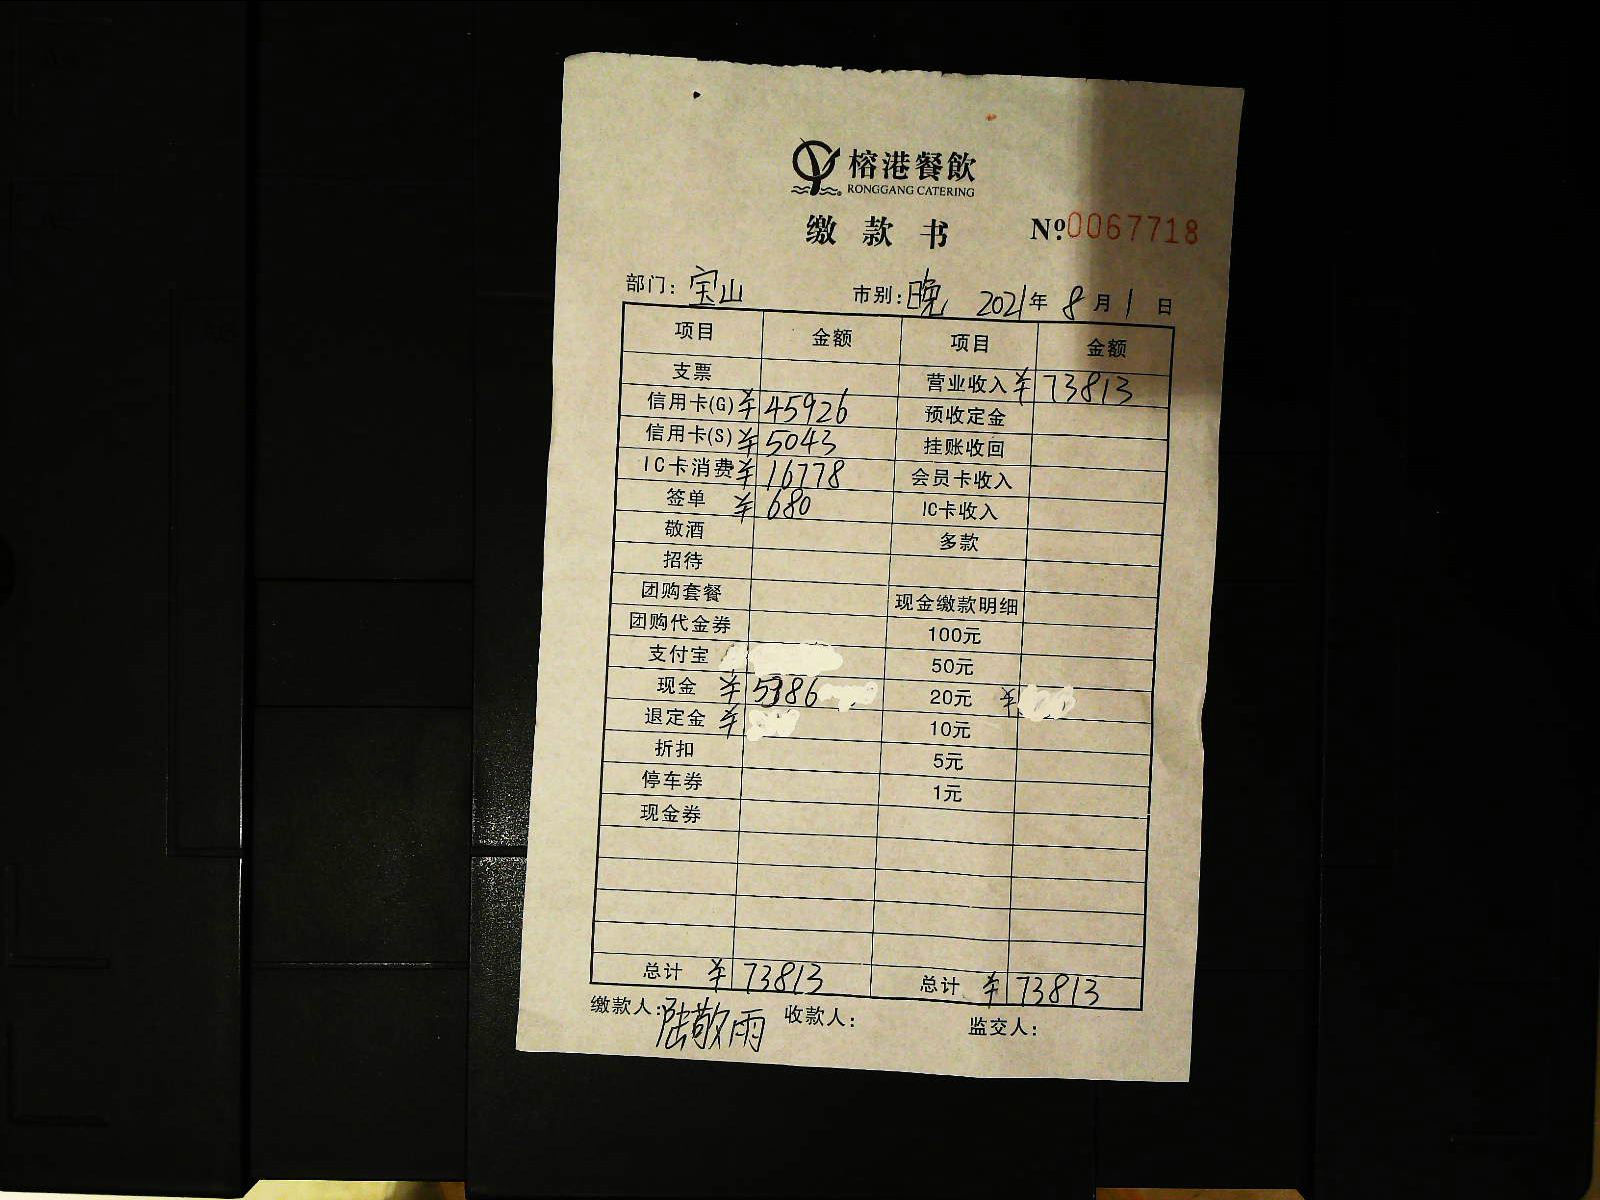 榕港餐飲
RONGGANG CATERING
缴款书 №0067718
部门: 宝山 市别: 晚 2021年8月1日
项目 金额 项目 金额
支票 营业收入 ¥73813
信用卡(G) ¥45926 预收定金
信用卡(S) ¥5043 挂账收回
IC卡消费 ¥16778 会员卡收入
签单 ¥680 IC卡收入
敬酒 多款
招待
团购套餐 现金缴款明细
团购代金券 100元
支付宝 50元
现金 ¥5386 20元 ¥
退定金 ¥ 10元
折扣 5元
停车券 1元
现金券
总计 ¥73813 总计 ¥73813
缴款人: 陆敬雨 收款人: 监交人: